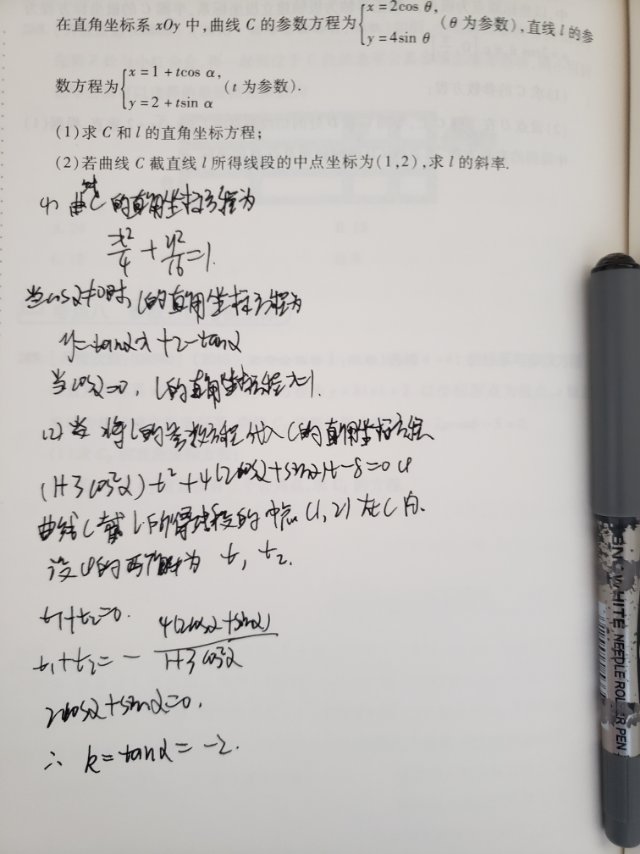 在直角坐标系 xOy 中,曲线 C 的参数方程为{x=2cos θ, y=4sin θ (θ 为参数),直线 l 的参
数方程为{x=1+tcos α, y=2+tsin α (t 为参数).
(1)求 C 和 l 的直角坐标方程;
(2)若曲线 C 截直线 l 所得线段的中点坐标为(1,2),求 l 的斜率.
(1) 曲线C的直角坐标方程为
x²/4 + y²/16 =1.
当cosα≠0时, l的直角坐标方程为
y=tanα·x+2-tanα
当cosα=0, l的直角坐标方程x=1.
(2) 将l的参数方程代入C的直角坐标方程
(1+3cos²α)t²+4(2cosα+sinα)t-8=0 ①
曲线C截l所得线段的中点(1,2)在C内.
设①的两解为 t₁, t₂.
t₁+t₂=0.
t₁+t₂= - 4(2cosα+sinα)/(1+3cos²α)
2cosα+sinα=0,
∴ k=tanα=-2.
WHITE NEEDLE ROLLER PEN